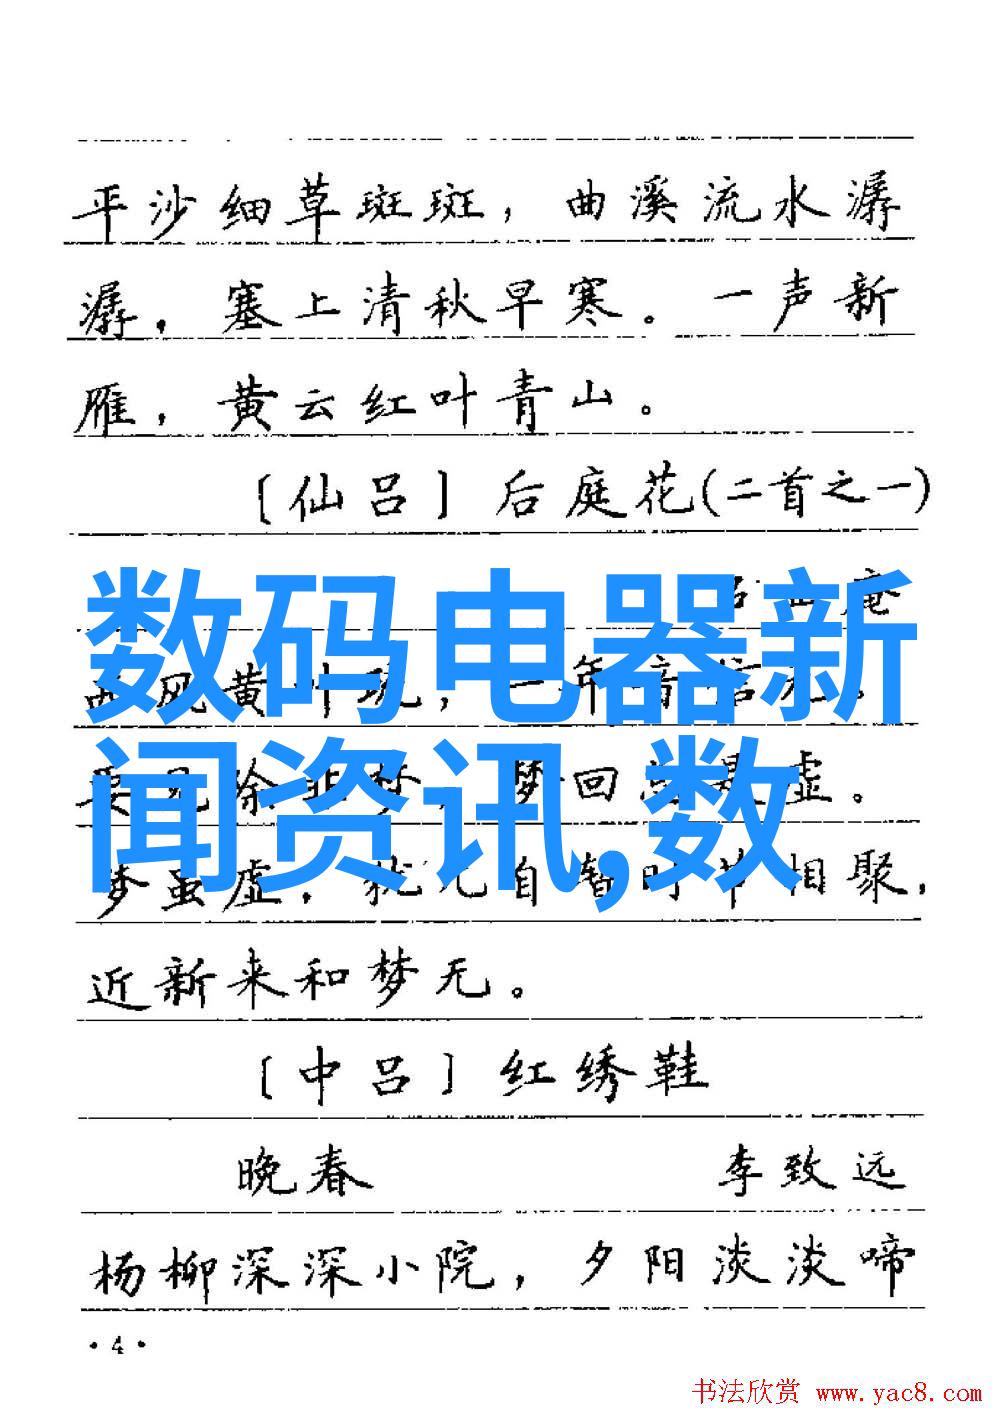 平沙细草斑斑，曲溪流水潺
潺，塞上清秋早寒。一声新
雁，黄云红叶青山。
〔仙吕〕后庭花(二首之一)
数码电器新
闻资讯,数
庵
黄叶
年音信
回 虚。
梦虽虚， 自 时节相聚，
近新来和梦无。
〔中吕〕红绣鞋
晚春 李致远
杨柳深深小院，夕阳淡淡啼
·4·
书法欣赏 www.yac8.com